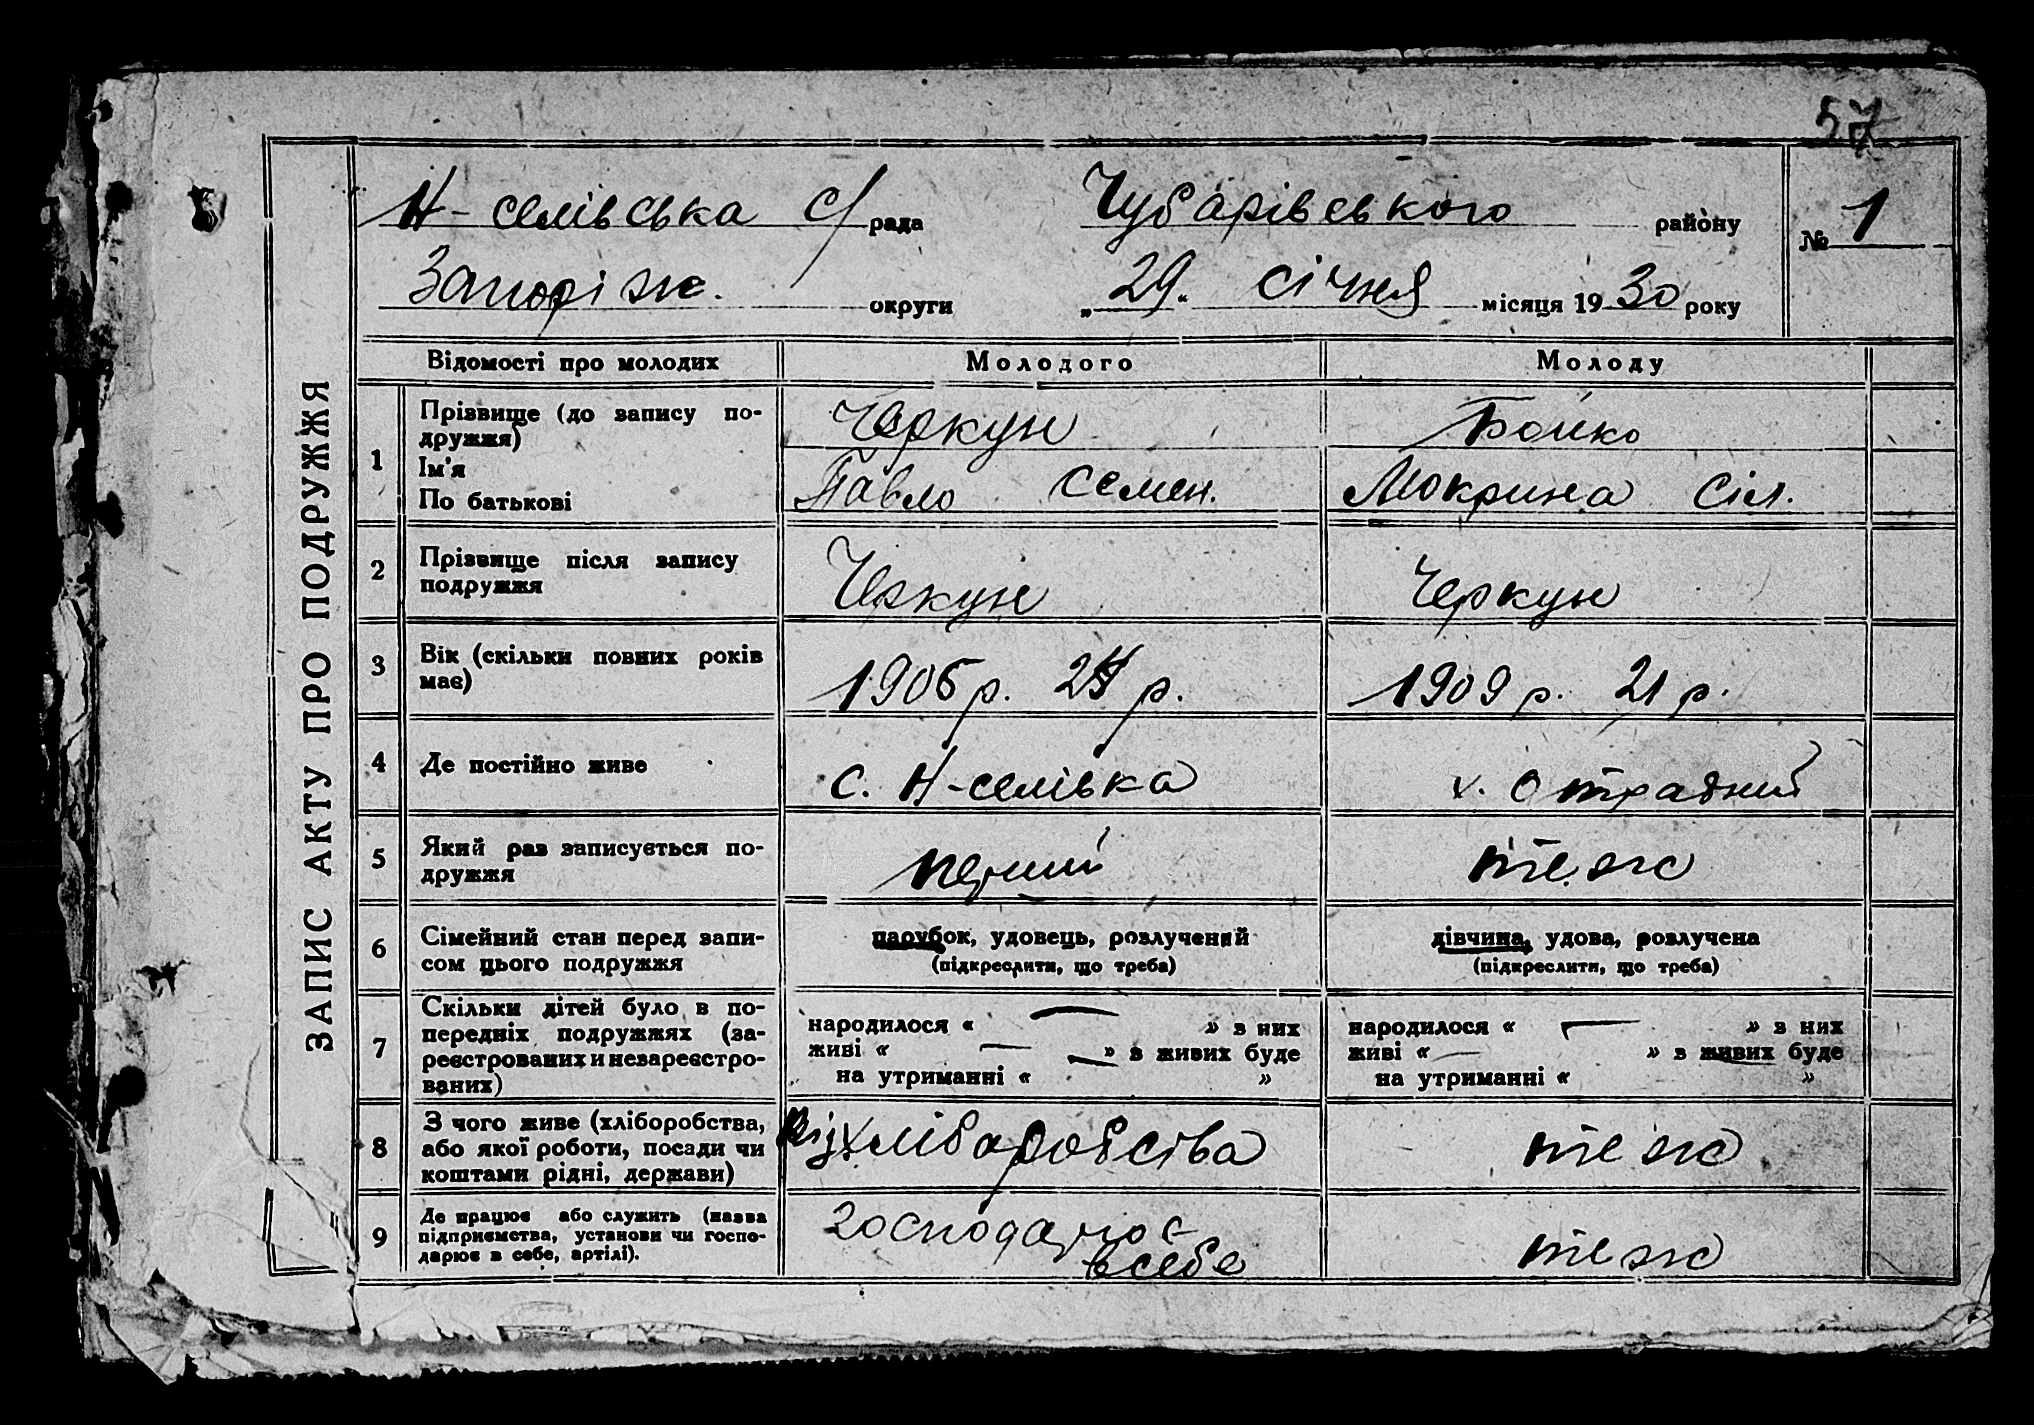 57
Н-селівська с/рада Чубарівського району № 1
Запоріж. округи „29“ січня місяця 1930 року
ЗАПИС АКТУ ПРО ПОДРУЖЖЯ
Відомості про молодих Молодого Молоду
1 Прізвище (до запису по-
дружжя) Черкун Бойко
Ім'я
По батькові Павло Семен. Мокрина Сил.
2 Прізвище після запису
подружжя Черкун Черкун
3 Вік (скільки повних років
має) 1906 р. р. 1909 р. 21 р.
4 Де постійно живе с. Н-селівка х. Отрадний
5 Який раз записується по-
дружжя перший теж
6 Сімейний стан перед запи-
сом цього подружжя
парубок, удовець, розлучений
(підкреслити, що треба)
дівчина, удова, розлучена
(підкреслити, що треба)
7 Скільки дітей було в по-
передніх подружжях (за-
реєстрованих и незареєстро-
ваних)
народилося « — » з них
живі « — » з живих буде
на утриманні « »
народилося « — » з них
живі « — » з живих буде
на утриманні « »
8 З чого живе (хліборобства,
або якої роботи, посади чи
коштами рідні, держави)
Віз хліборобства теж
9 Де працює або служить (назва
підприємства, установи чи госпо-
дарює в себе, артілі).
господарює
в себе
теж